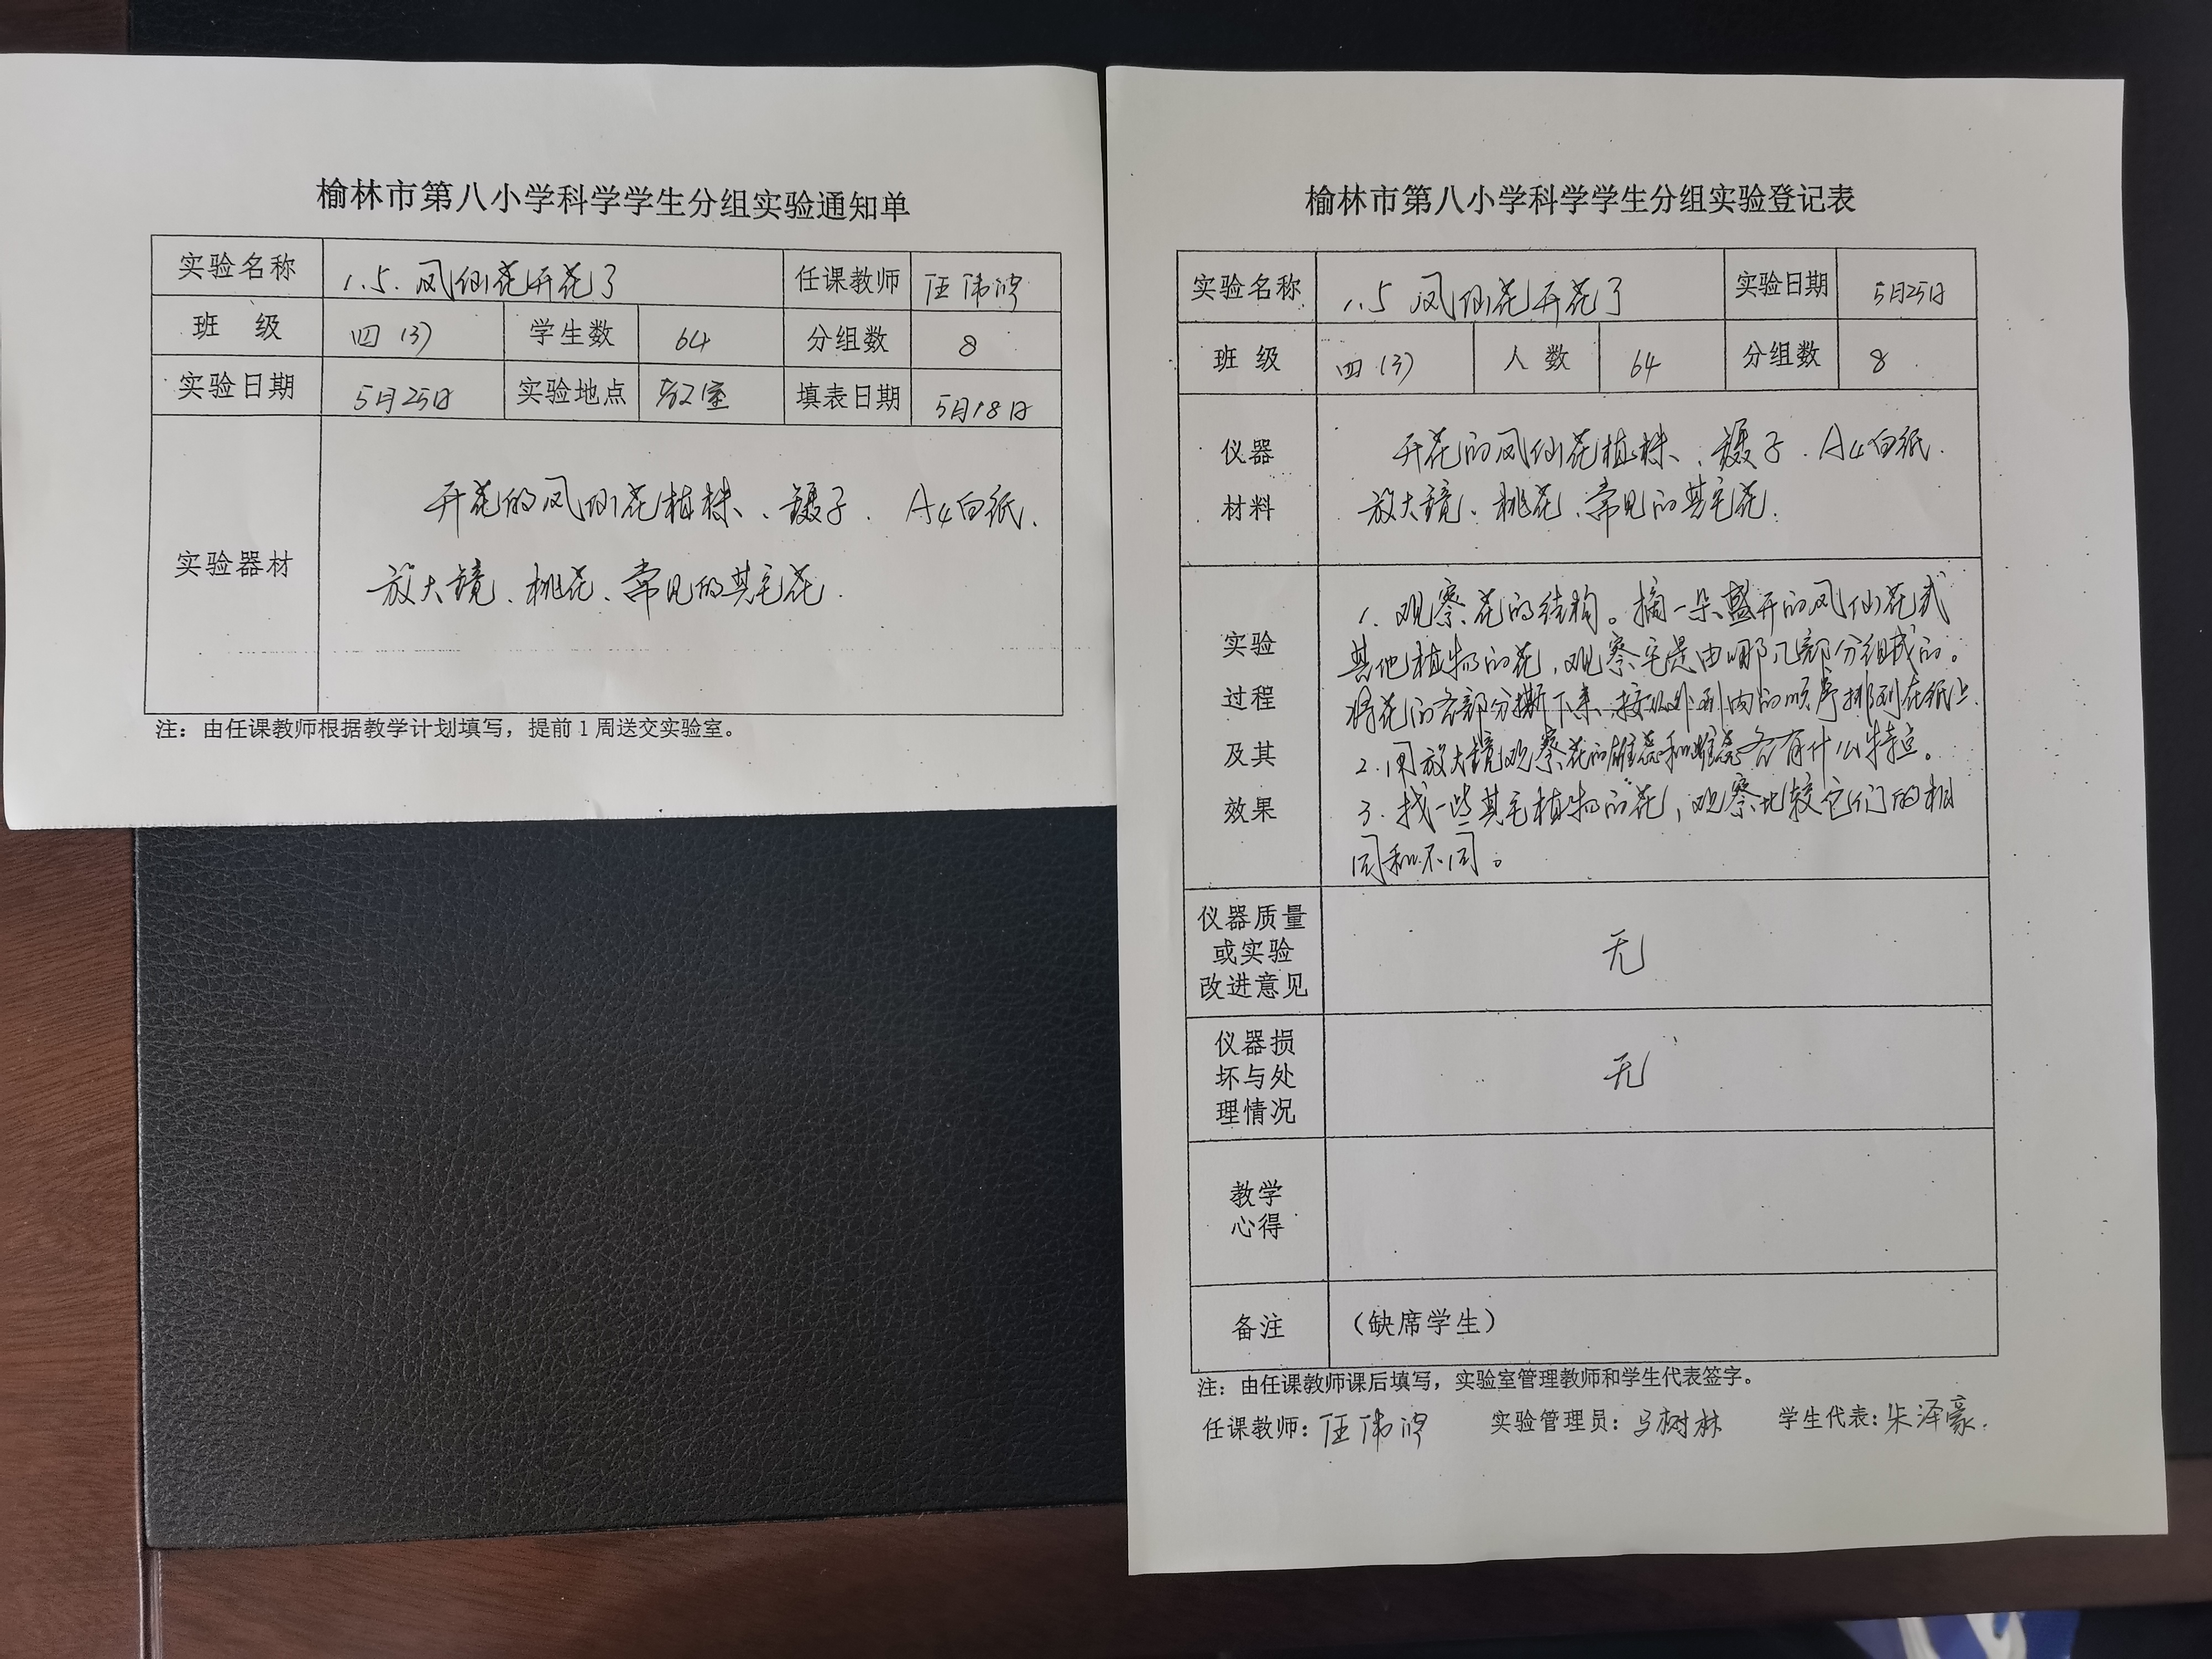 榆林市第八小学科学学生分组实验通知单
实验名称 1.5.凤仙花开花了 任课教师
班 级 四(3) 学生数 64 分组数 8
实验日期 5月25日 实验地点 教室 填表日期 5月18日
实验器材
开花的凤仙花植株、镊子.A4白纸、
放大镜、桃花、常见的其它花.
注：由任课教师根据教学计划填写，提前1周送交实验室。
榆林市第八小学科学学生分组实验登记表
实验名称 1.5 凤仙花开花了 实验日期 5月25日
班 级 四(3) 人 数 64 分组数 8
仪器
材料
开花的凤仙花植株、镊子.A4白纸.
放大镜、桃花、常见的其它花.
实验
过程
及其
效果
1.观察花的结构。摘一朵盛开的凤仙花或
其他植物的花，观察它是由哪几部分组成的。
将花的各部分撕下来.按从外到内的顺序排列在纸上.
2.用放大镜观察花的雄蕊和雌蕊各有什么特点。
3.找一些其它植物的花，观察比较它们的相
同和不同。
仪器质量
或实验
改进意见
无
仪器损
坏与处
理情况
无
教学
心得
备注 （缺席学生）
注：由任课教师课后填写，实验室管理教师和学生代表签字。
任课教师： 实验管理员：马树林 学生代表：朱泽豪.